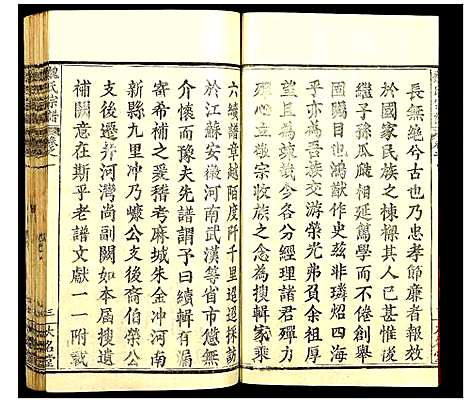 長無絶兮古也乃忠孝節廉者報效
於國家民族之棟樑其人已甚惟後
繼子孫瓜瓞相延篤學而不倦創舉
是為諶猷作史玆非璘炤四海
亦其為吾族交游榮光弗負余祖昇
且又為諫議今各分經理諸君殫
心立敬宗收族之念為搜輯家乘
六續譜章越陌度阡千里迢迢採訪
於江蘇安徽河南武漢等省市不
介懷而豫夫先譜謂予曰續輯可
寄希補之爰稽考麻城朱金冲河南
新縣九里冲乃㷀公支後裔伯榮公
支後遷弁河灣尚副闕如本届搜遺
補闕意在斯乎老譜文獻一一附載
魏氏宗譜
卷八
三
大名堂